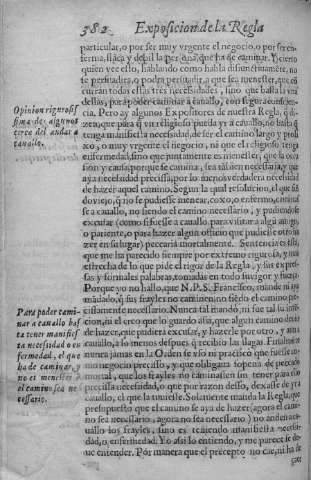 382 Exposicion de la Regla
particular, o por ser muy vrgente el negocio, o por ser en-
ferma, flaca y debil la persona, que ha de caminar. Y cierto
quien vee esto, hablando como habla disjunctiuamẽte, no
te persuadira, o podra persuadir, a que sea menester, que
curran todas estas tres necessidades, sino que basta vna
dellas, para poder caminar à cauallo, con segura conscien-
cia. Pero ay algunos Expositores de nuestra Regla, q̃ di-
zen, que para q̃ vn religioso pueda yr à cauallo, no basta q̃
tenga manifiesta necessidad, de ser el camino largo y proli
xo, o muy vrgente el negocio, ni que el religioso tenga
enfermedad, sino que juntamente es menester, que la oca-
sion y causa, porque se camina, sea tãbien necessaria, y que
aya necessidad precissa, por no mera verdadera necessidad
de hazer aquel camino. Segun la qual resolucion, el que fuesse
do viejo, q̃ no se pudiesse menear, coxo, o enfermo, camina-
se a cauallo, no siendo el camino necessario, y pudiendose
escusar (como si fuesse a cauallo para visitar a algũ amigo,
o pariente, o para hazer algun officio que pudiesse otro ha
zer en su lugar) peccaria mortalmente. Sentencia es esta,
que me ha parecido siempre por extremo rigurosa, y mas
estrecha de lo que pide el rigor de la Regla, y sus expres-
sas y formales palabras, tomadas en todo su rigor y fuerça.
Porque yo no hallo, que N.P.S. Francisco, mande ni aya
mãdado, q̃ sus frayles no caminen, no siẽdo el camino pre-
cissamente necessario. Nunca tal mandò, ni fue tal su inten-
cion, ni el creo que lo guardò assi, que algun camino dexa
de hazer, que pudiera escusar, y le hizo, algunas vezes, y a
cauallo, a lo menos despues q̃ recibio las llagas. Finalmente
nunca jamas en la Orden se vso ni practicò que fuesse en
mo negocio precisso, y que obligara so pena de peccado
mortal, que los frayles no caminassen sin tener para ello
precissa necessidad, o que por razon desso, dexasse de yr a
cauallo, el que la tuuiesse. Solamente manda la Regla, que
presupuesto que el camino se aya de hazer (agora el camino
sea necessario, agora no sea necessario) no anden a ca-
uallo los frayles, sino es teniendo manifiesta necessi-
dad, o enfermedad. Yo assi lo entiendo, y me parece se de-
ue entender. Por manera que el precepto no cae, ni ha de
Opinion rigurosis
sima de algunos
cerca del andar a
cauallo.
Para poder camin
nar a cauallo bas
ta tener manifies
ta necessidad o en
fermedad, el que
ha de caminar, y
no es menester q̃
el camino sea ne
cessario.